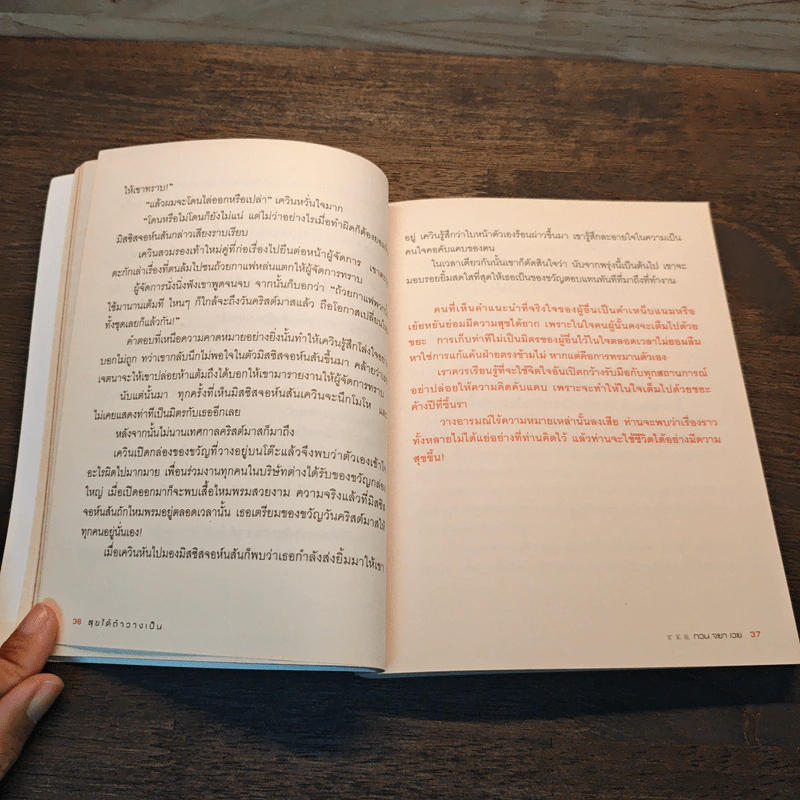 ให้เขาทราบ!"
"แล้วผมจะโดนไล่ออกหรือเปล่า" เควินหวั่นใจมาก
"โดนหรือไม่โดนก็ยังไม่แน่ แต่ไม่ว่าอย่างไรเมื่อทำผิดก็ต้องยอมรับ
มิสซิสจอห์นสันกล่าวเสียงราบเรียบ
เควินสวมรองเท้าใหม่คู่ที่ก่อเรื่องไปยืนต่อหน้าผู้จัดการ
ตะกักเล่าเรื่องที่ตนล้มไปชนถ้วยกาแฟหล่นแตกให้ผู้จัดการทราบ
ผู้จัดการนั่งนิ่งฟังเขาพูดจนจบ จากนั้นก็บอกว่า "ถ้วยกาแฟพวกนี้
ใช้มานานเต็มที ไหนๆ ก็ใกล้จะถึงวันคริสต์มาสแล้ว ถือโอกาสเปลี่ยนใหม่
ทั้งชุดเลยก็แล้วกัน!"
คำตอบที่เหนือความคาดหมายอย่างยิ่งนั้นทำให้เควินรู้สึกโล่งใจอย่าง
บอกไม่ถูก ทว่าเขากลับนึกไม่พอใจในตัวมิสซิสจอห์นสันขึ้นมา คล้ายว่าเธอ
เจตนาจะให้เขาปล่อยห้าแต้มถึงได้บอกให้เขามารายงานให้ผู้จัดการทราบ
นับแต่นั้นมา ทุกครั้งที่เห็นมิสซิสจอห์นสันเควินจะนึกโมโห และ
ไม่เคยแสดงท่าทีเป็นมิตรกับเธออีกเลย
หลังจากนั้นไม่นานเทศกาลคริสต์มาสก็มาถึง
เควินเปิดกล่องของขวัญที่วางอยู่บนโต๊ะแล้วจึงพบว่าตัวเองเข้าใจ
อะไรผิดไปมากมาย เพื่อนร่วมงานทุกคนในบริษัทต่างได้รับของขวัญกล่อง
ใหญ่ เมื่อเปิดออกมาก็จะพบเสื้อไหมพรมสวยงาม ความจริงแล้วที่มิสซิส
จอห์นสันถักไหมพรมอยู่ตลอดเวลานั้น เธอเตรียมของขวัญวันคริสต์มาสให้
ทุกคนอยู่นั่นเอง!
เมื่อเควินหันไปมองมิสซิสจอห์นสันก็พบว่าเธอกำลังส่งยิ้มมาให้เขา
36 สุขได้ถ้าวางเป็น
อยู่ เควินรู้สึกว่าใบหน้าตัวเองร้อนผ่าวขึ้นมา เขารู้สึกละอายใจในความเป็น
คนใจคอคับแคบของตน
ในเวลาเดียวกันนั้นเขาก็ตัดสินใจว่า นับจากพรุ่งนี้เป็นต้นไป เขาจะ
มอบรอยยิ้มสดใสที่สุดให้เธอเป็นของขวัญตอบแทนทันทีที่มาถึงที่ทำงาน
คนที่เห็นคำแนะนำที่จริงใจของผู้อื่นเป็นคำเหน็บแนมหรือ
เย้ยหยันย่อมมีความสุขได้ยาก เพราะในใจคนผู้นั้นคงจะเต็มไปด้วย
ขยะ การเก็บท่าทีไม่เป็นมิตรของผู้อื่นไว้ในใจตลอดเวลาไม่ยอมลืม
หาใช่การแก้แค้นฝ่ายตรงข้ามไม่ หากแต่คือการทรมานตัวเอง
เราควรเรียนรู้ที่จะใช้จิตใจอันเปิดกว้างรับมือกับทุกสถานการณ์
อย่าปล่อยให้ความคิดคับแคบ เพราะจะทำให้ในใจเต็มไปด้วยขยะ
ค้างปีที่ขึ้นรา
วางอารมณ์ไร้ความหมายเหล่านั้นลงเสีย ท่านจะพบว่าเรื่องราว
ทั้งหลายไม่ได้แย่อย่างที่ท่านคิดไว้ แล้วท่านจะใช้ชีวิตได้อย่างมีความ
สุขขึ้น!
กวน จยา เวย 37